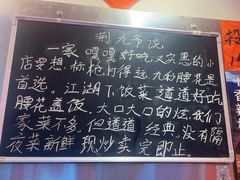 荆九爷说
一家嘎嘎好吃又实惠的小
店要想标枪打得远,九秒腰花是
首选。江湖下饭菜道道好吃
腰花盖饭,大口大口的炫,我们
家菜不多,但道道经典,没有隔
夜菜新鲜现炒卖完即止。
投